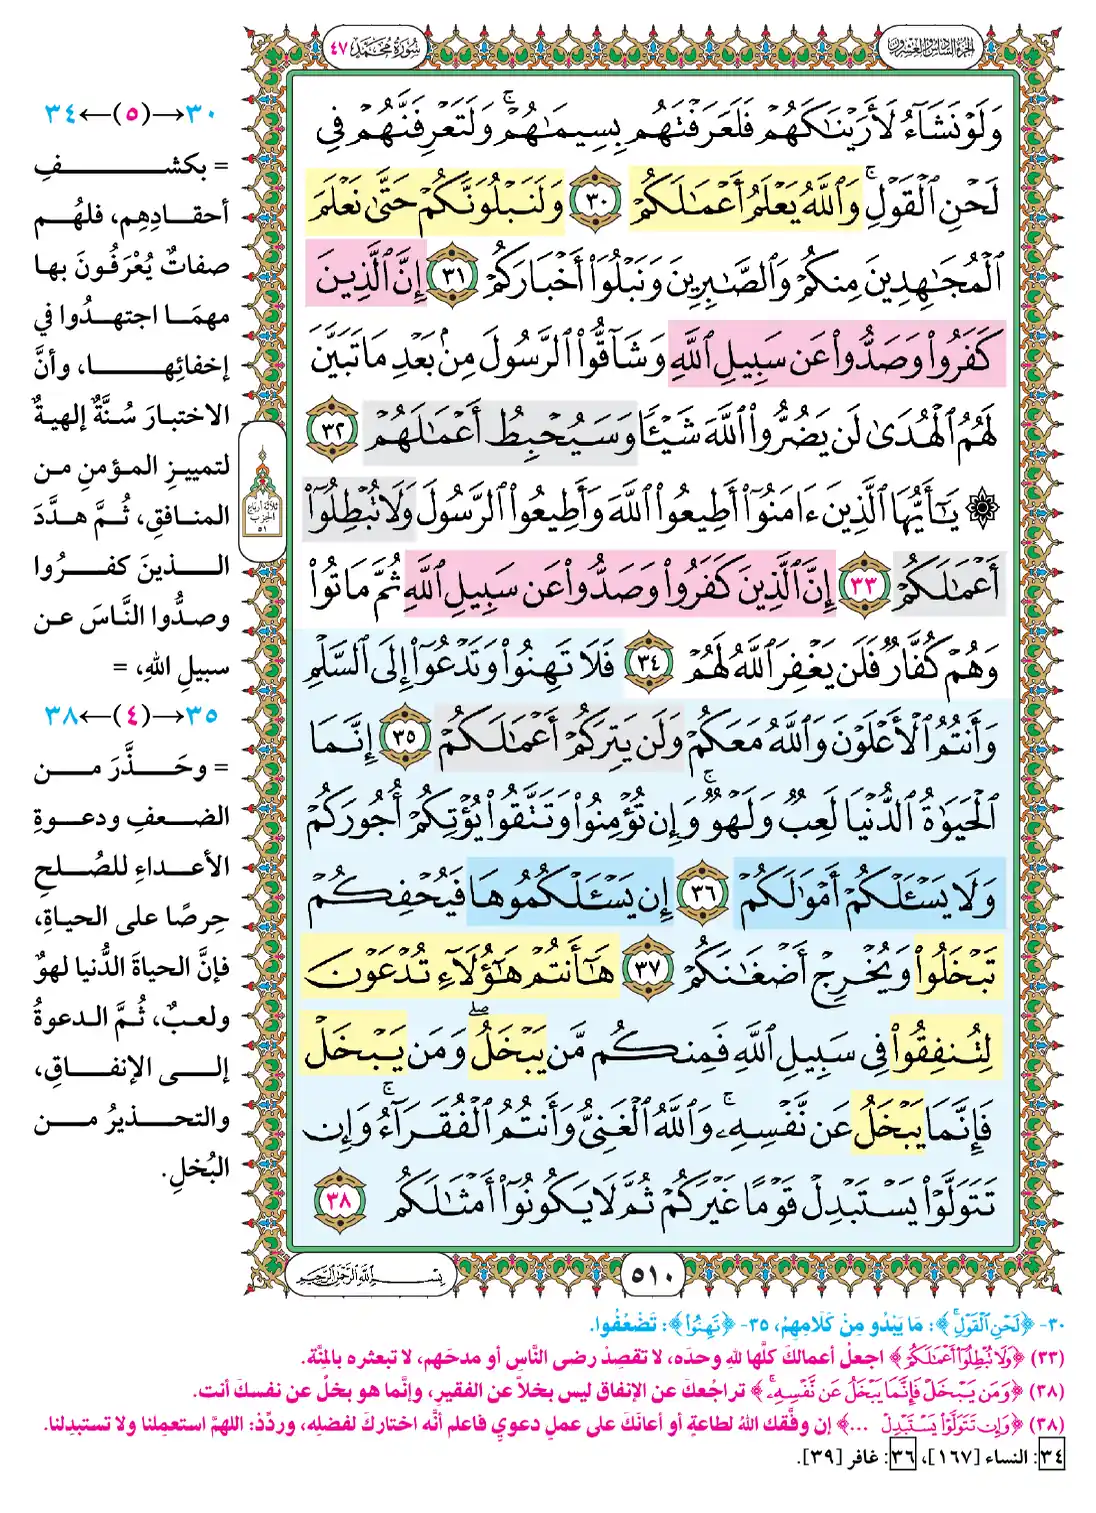 الجزء السادس والعشرون
سُورَةُ مُحَمَّد ٤٧
وَلَوْ نَشَآءُ لَأَرَيْنَٰكَهُمْ فَلَعَرَفْتَهُم بِسِيمَٰهُمْ ۚ وَلَتَعْرِفَنَّهُمْ فِى
لَحْنِ ٱلْقَوْلِ ۚ وَٱللَّهُ يَعْلَمُ أَعْمَٰلَكُمْ ٣٠ وَلَنَبْلُوَنَّكُمْ حَتَّىٰ نَعْلَمَ
ٱلْمُجَٰهِدِينَ مِنكُمْ وَٱلصَّٰبِرِينَ وَنَبْلُوَا۟ أَخْبَارَكُمْ ٣١ إِنَّ ٱلَّذِينَ
كَفَرُوا۟ وَصَدُّوا۟ عَن سَبِيلِ ٱللَّهِ وَشَآقُّوا۟ ٱلرَّسُولَ مِنۢ بَعْدِ مَا تَبَيَّنَ
لَهُمُ ٱلْهُدَىٰ لَن يَضُرُّوا۟ ٱللَّهَ شَيْـًٔا وَسَيُحْبِطُ أَعْمَٰلَهُمْ ٣٢
۞ يَٰٓأَيُّهَا ٱلَّذِينَ ءَامَنُوٓا۟ أَطِيعُوا۟ ٱللَّهَ وَأَطِيعُوا۟ ٱلرَّسُولَ وَلَا تُبْطِلُوٓا۟
أَعْمَٰلَكُمْ ٣٣ إِنَّ ٱلَّذِينَ كَفَرُوا۟ وَصَدُّوا۟ عَن سَبِيلِ ٱللَّهِ ثُمَّ مَاتُوا۟
وَهُمْ كُفَّارٌ فَلَن يَغْفِرَ ٱللَّهُ لَهُمْ ٣٤ فَلَا تَهِنُوا۟ وَتَدْعُوٓا۟ إِلَى ٱلسَّلْمِ
وَأَنتُمُ ٱلْأَعْلَوْنَ وَٱللَّهُ مَعَكُمْ وَلَن يَتِرَكُمْ أَعْمَٰلَكُمْ ٣٥ إِنَّمَا
ٱلْحَيَوٰةُ ٱلدُّنْيَا لَعِبٌ وَلَهْوٌ ۚ وَإِن تُؤْمِنُوا۟ وَتَتَّقُوا۟ يُؤْتِكُمْ أُجُورَكُمْ
وَلَا يَسْـَٔلْكُمْ أَمْوَٰلَكُمْ ٣٦ إِن يَسْـَٔلْكُمُوهَا فَيُحْفِكُمْ
تَبْخَلُوا۟ وَيُخْرِجْ أَضْغَٰنَكُمْ ٣٧ هَٰٓأَنتُمْ هَٰٓؤُلَآءِ تُدْعَوْنَ
لِتُنفِقُوا۟ فِى سَبِيلِ ٱللَّهِ فَمِنكُم مَّن يَبْخَلُ ۖ وَمَن يَبْخَلْ
فَإِنَّمَا يَبْخَلُ عَن نَّفْسِهِۦ ۚ وَٱللَّهُ ٱلْغَنِىُّ وَأَنتُمُ ٱلْفُقَرَآءُ ۚ وَإِن
تَتَوَلَّوْا۟ يَسْتَبْدِلْ قَوْمًا غَيْرَكُمْ ثُمَّ لَا يَكُونُوٓا۟ أَمْثَٰلَكُم ٣٨
٣٠→(٥)←٣٤
= بكشفِ
أحقادِهِم، فلهُم
صفاتٌ يُعْرَفُونَ بها
مهمَا اجتهدُوا في
إخفائِها، وأنَّ
الاختبارَ سُنَّةٌ إلهيةٌ
لتمييزِ المؤمنِ من
المنافقِ، ثُمَّ هدَّدَ
الذينَ كفرُوا
وصدُّوا النَّاسَ عن
سبيلِ اللهِ، =
٣٥→(٤)←٣٨
= وحَذَّرَ من
الضعفِ ودعوةِ
الأعداءِ للصُلحِ
حِرصًا على الحياةِ،
فإنَّ الحياةَ الدُّنيا لهوٌ
ولعبٌ، ثُمَّ الدعوةُ
إلى الإنفاقِ،
والتحذيرُ من
البُخلِ.
ثلاثة أرباع
الحزب
٥١
٥١٠
بِسْمِ اللَّهِ الرَّحْمَٰنِ الرَّحِيمِ
٣٠- ﴿لَحْنِ ٱلْقَوْلِ ۚ﴾: مَا يَبْدُو مِنْ كَلَامِهِمْ، ٣٥- ﴿تَهِنُوا۟﴾: تَضْعُفُوا.
(٣٣) ﴿وَلَا تُبْطِلُوٓا۟ أَعْمَٰلَكُمْ﴾ اجعلْ أعمالكَ كلَّها للهِ وحدَه، لا تقصِدْ رضى النَّاسِ أو مدحَهم، لا تبعثره بالمِنَّة.
(٣٨) ﴿وَمَن يَبْخَلْ فَإِنَّمَا يَبْخَلُ عَن نَّفْسِهِۦ ۚ﴾ تراجُعكَ عن الإنفاقِ ليس بخلاً عن الفقيرِ، وإنَّما هو بخلٌ عن نفسكَ أنت.
(٣٨) ﴿وَإِن تَتَوَلَّوْا۟ يَسْتَبْدِلْ ...﴾ إن وفَّقك اللهُ لطاعةٍ أو أعانَكَ على عملٍ دعويٍ فاعلم أنَّه اختاركَ لفضلِه، وردِّدْ: اللهمَّ استعمِلنا ولا تستبدِلنا.
٣٤: النساء [١٦٧]، ٣٦: غافر [٣٩].